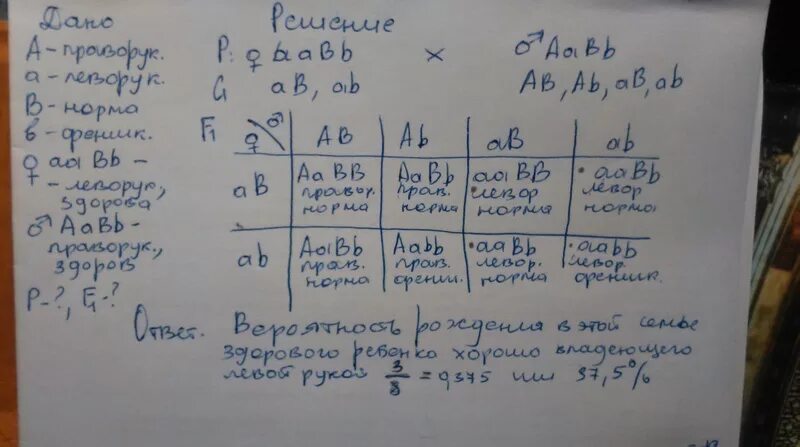 Дано
А - праворук.
а - леворук.
В - норма
в - феник.
♀ ааВb -
- леворук.,
здорова
♂ АаВb -
праворук.,
здоров
Р-?, F₁-?
Решение
Р: ♀ ааВb × ♂ АаВb
G аВ, аb АВ, Аb, аВ, аb
F₁ ♀ ♂ АВ Аb аВ аb
аВ АаВВ АаВb ааВВ ааВb
правор. прав. левор левор
норма норма норма норма
аb АаВb Ааbb ааВb ааbb
прав. прав. левор. левор.
норма фенил. норма феник.
Ответ. Вероятность рождения в этой семье
здорового ребенка хорошо владеющего
левой рукой 3/8 = 0,375 или 37,5%